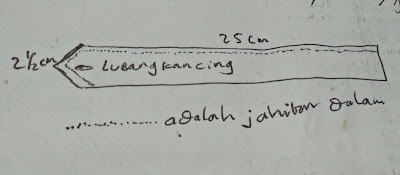 25 cm
2 1/2 cm
Lubang kancing
............... adalah jahitan dalam